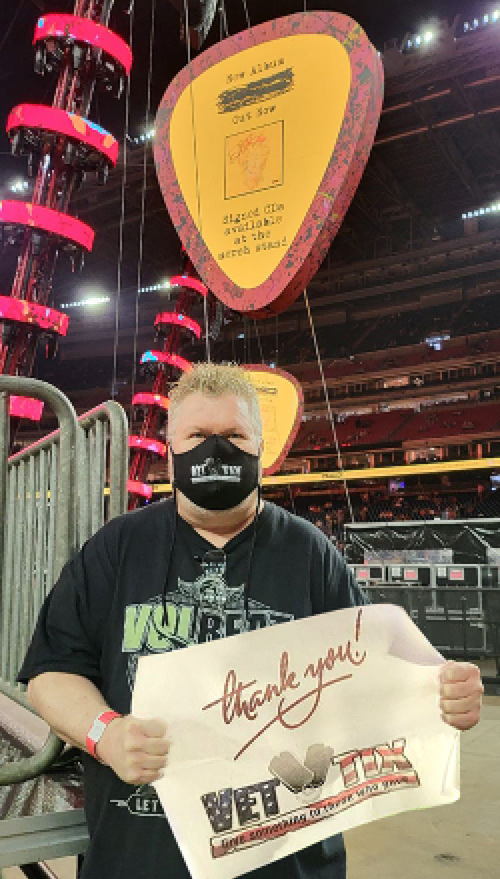 New Album
Out Now
Signed CDs
available
at the
merch stand
VET TIX
VOLBEAT
thank you!
VET TIX
Give something to those who gave.
LET